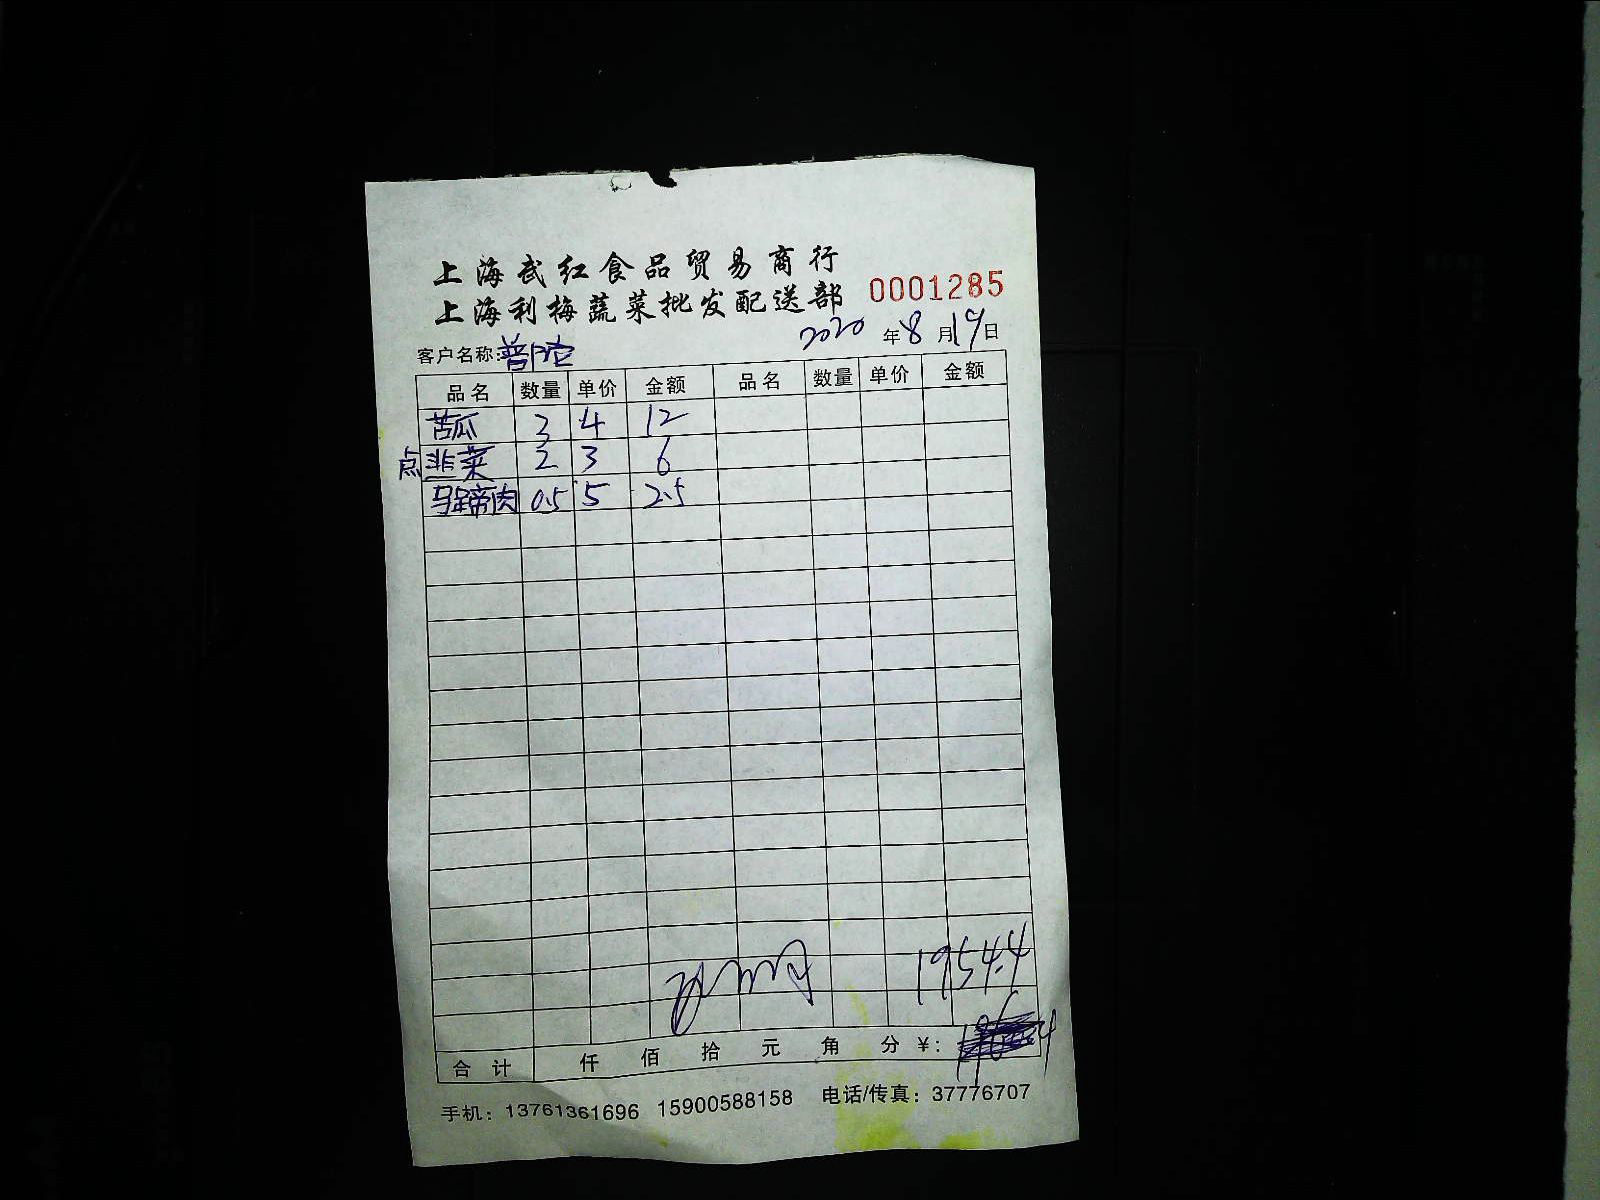 上海武红食品贸易商行
上海利梅蔬菜批发配送部 0001285
2020年8月19日
客户名称:普陀
品名 数量 单价 金额 品名 数量 单价 金额
苦瓜 3 4 12
点 韭菜 2 3 6
马蹄肉 0.5 5 2.5
1954.4
合计 仟 佰 拾 元 角 分 ¥:
手机：13761361696 15900588158 电话/传真：37776707